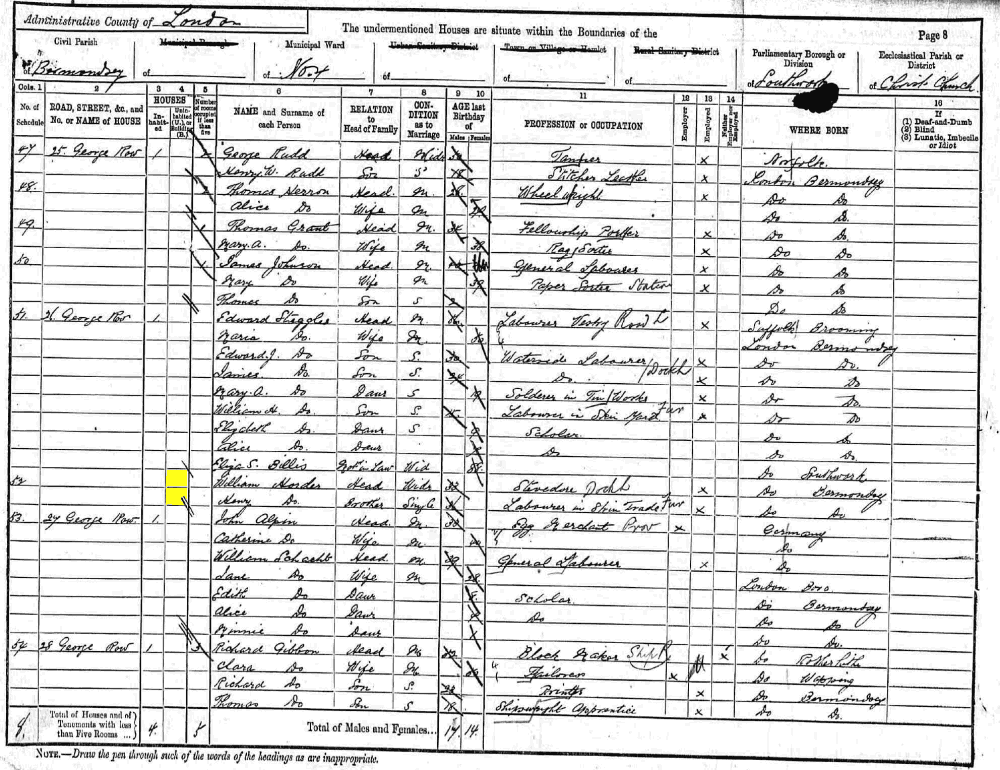 Administrative County of London
The undermentioned Houses are situate within the Boundaries of the
Page 8
Civil Parish
of Bermondsey
Municipal Borough
of
Municipal Ward
of No. 4
Urban Sanitary District
of
Town or Village or Hamlet
of
Rural Sanitary District
of
Parliamentary Borough or Division
of Southwark
Ecclesiastical Parish or District
of Christ Church
Cols. 1 2 3 4 5 6 7 8 9 10 11 12 13 14 15 16
No. of Schedule
ROAD, STREET, &c., and No. or NAME of HOUSE
HOUSES
In-habit-ed
Unin-habited (U.), or Building (B.)
Number of rooms occupied if less than five
NAME and Surname of each Person
RELATION to Head of Family
CON-DITION as to Marriage
AGE last Birthday of
Males
Females
PROFESSION or OCCUPATION
Employer
Employed
Neither
WHERE BORN
If
(1) Deaf-and-Dumb
(2) Blind
(3) Lunatic, Imbecile or Idiot
47 25. George Row 1 George Rudd Head Widr Tanner x Norfolk
Henry W. Rudd Son S 18 Stitcher Leather x London Bermondsey
48. Thomas Herron Head M Wheelwright x Do Do
Alice Do Wife M Do Do
49. Thomas Grant Head M. Fellowship Porter x Do Do
Mary A. Do. Wife M Rag Sorter x Do Do
50 James Johnson Head M General Labourer x Do Do
Mary Do Wife M 39 Paper Sorter x Do Do
Thomas Do Son S Do Do
51. 26 George Row 1. Edward Steggles Head M Labourer Vestry x Suffolk
Maria Do. Wife M London Bermondsey
Edward J. Do Son S. Waterside Labourer / Dock h x Do Do.
James Do. Son S 24 Do x Do Do
Mary A. Do Daur S 19 Solderer in Tin Works x Do Do
William H. Do. Son S Labourer in Skin Yard Fur x Do Do
Elizabeth Do. Daur S Scholar Do Do
Alice Do. Daur Do Do Do
Eliza S. Billis Mothr in Law Wid Do Southwark
52 William Horder Head Widr 33 Stevedore Dock h x Do Bermondsey
Henry Do. Brother Single Labourer in Skin Trade Fur x Do Do
53. 27 George Row 1. John Alpin Head M Egg Merchant Prov x Germany
Catherine Do Wife M Do
William Schacht Head M 39 General Labourer x Do
Jane Do Wife M 28 London
Edith Do Daur Scholar Do Bermondsey
Alice Do Daur Do Do Do
Minnie Do Daur Do Do
54 28 George Row 1 3 Richard Gibbon Head M Block Maker Ship x Do Rotherhithe
Clara Do Wife M Tailoress x Do Wapping
Richard Do Son S Printer x Do Bermondsey
Thomas Do Son S 18 Shipwright Apprentice x Do Do.
Total of Houses and of Tenements with less than Five Rooms ...
4. 5
Total of Males and Females... 17 14
NOTE.—Draw the pen through such of the words of the headings as are inappropriate.